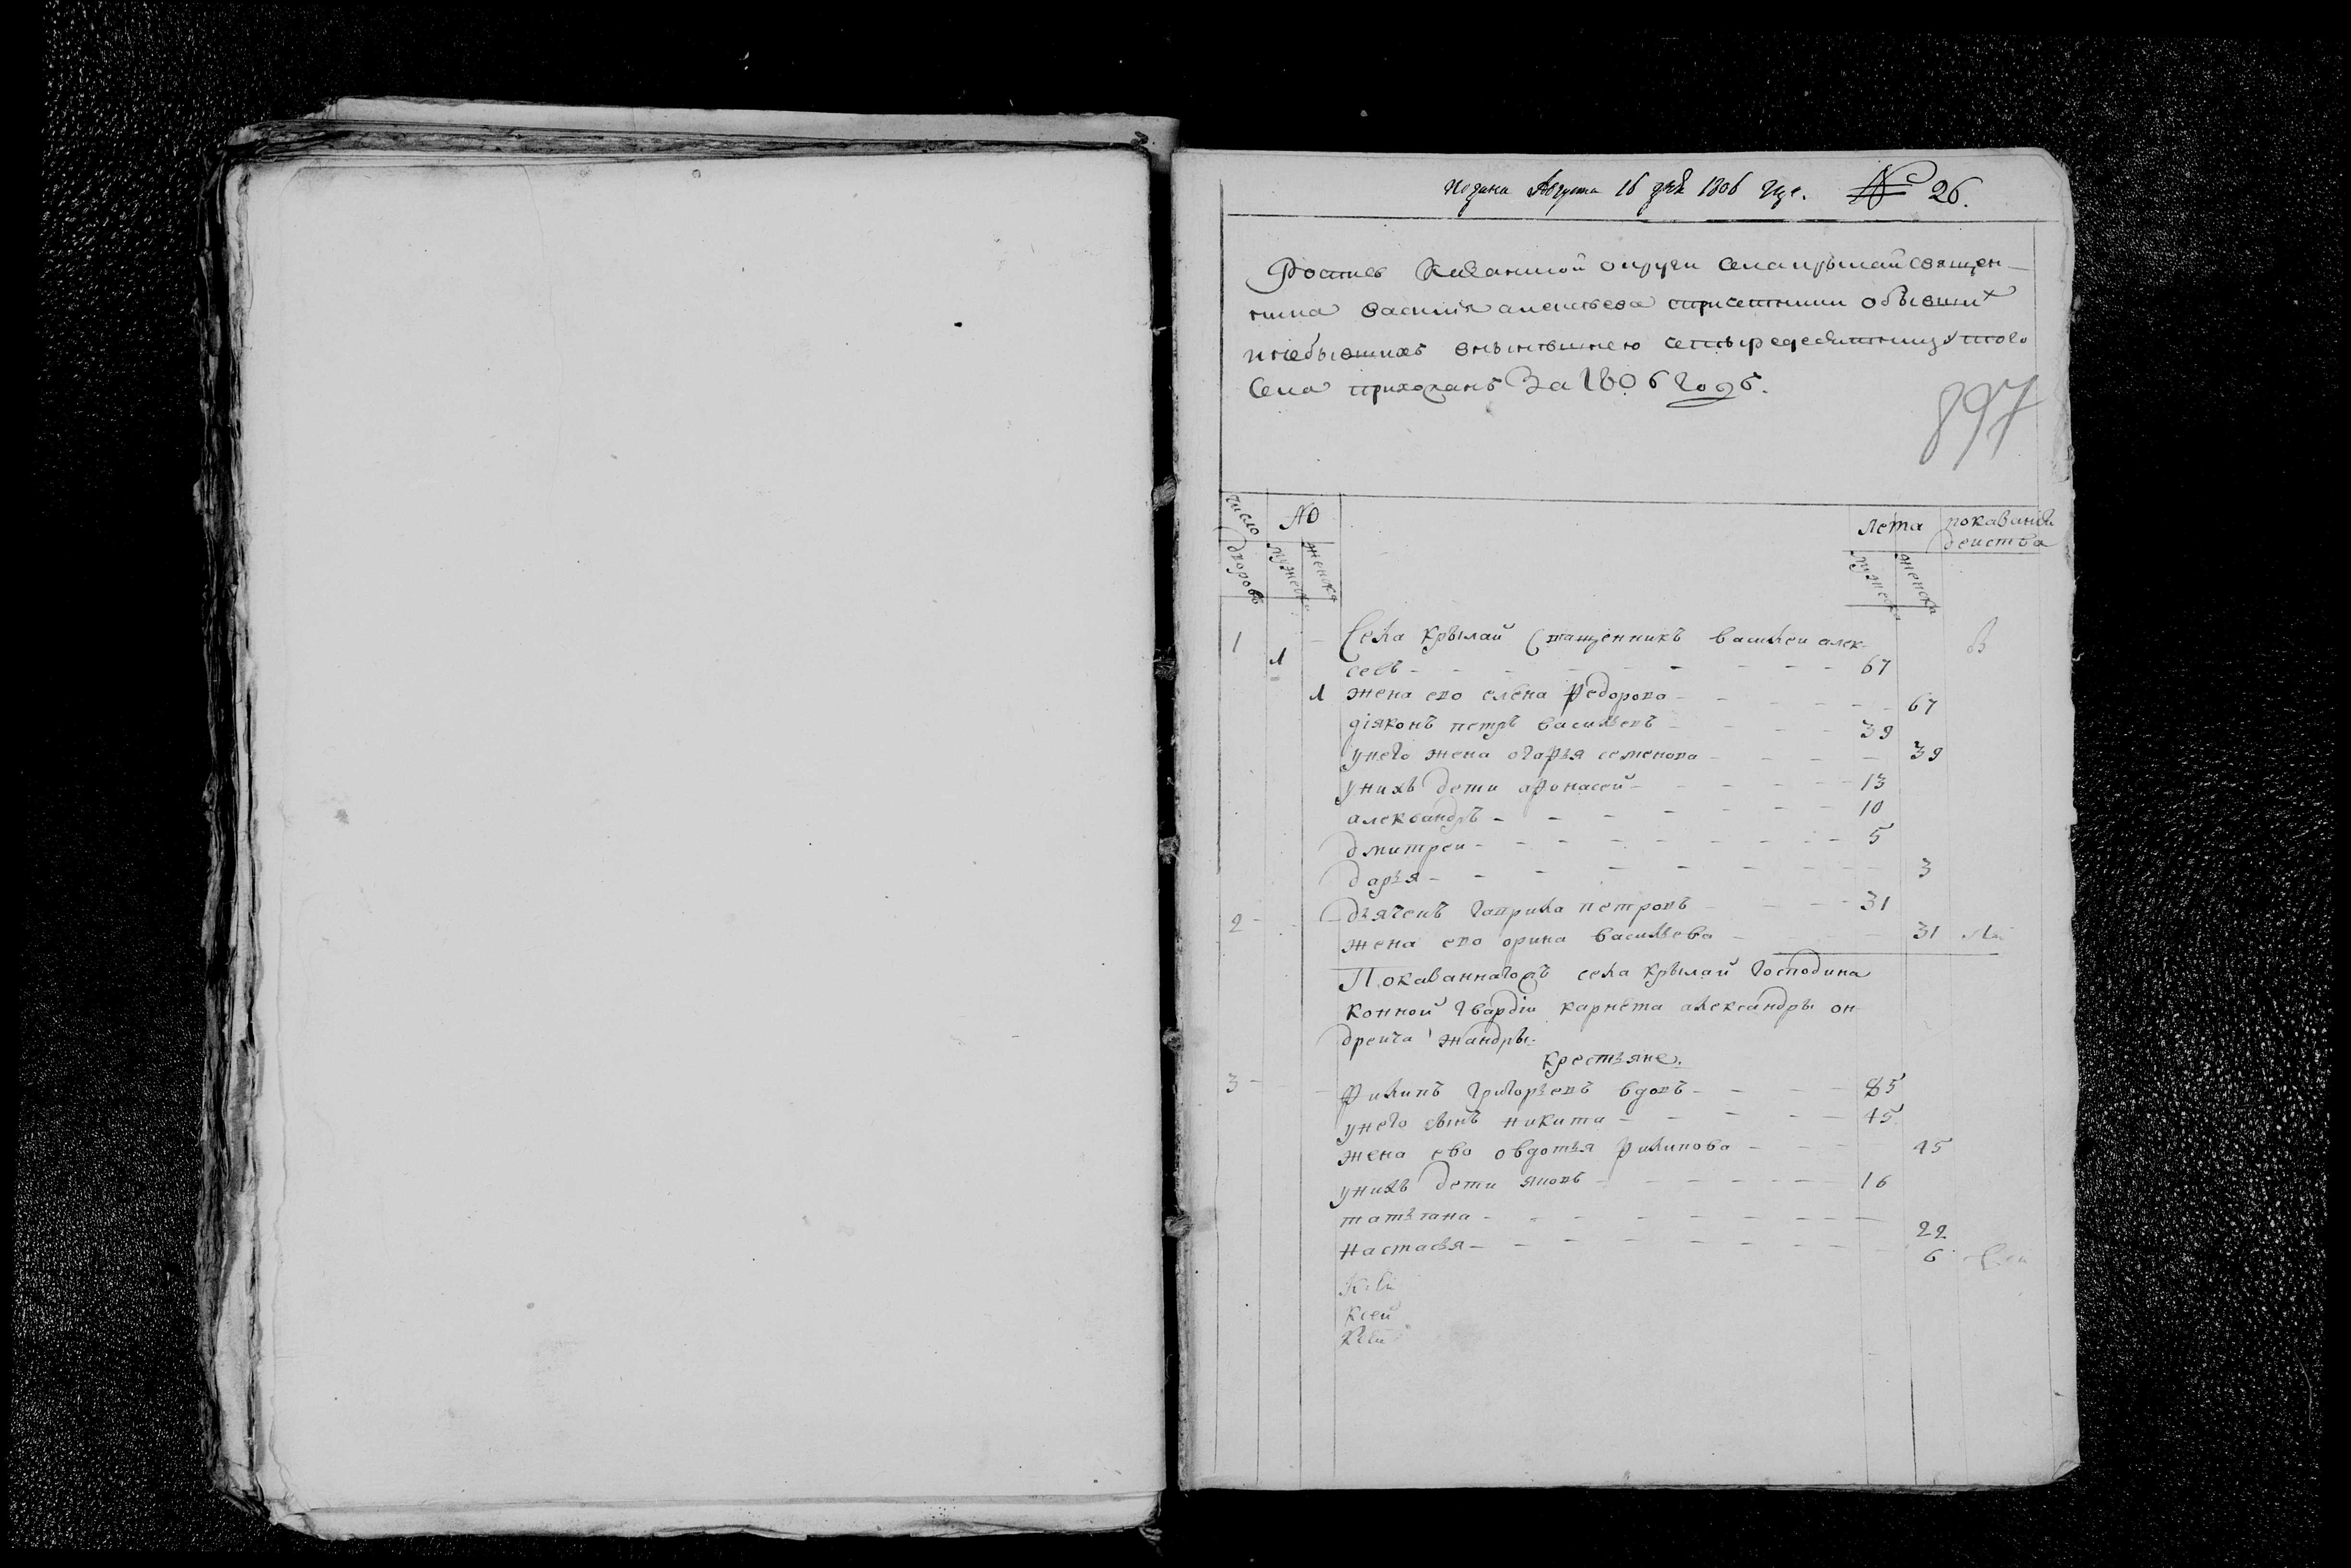 подана Августа 16 дня 1806 года. № 26.
Роспись округи села крылай священ-
ника василия алексеева спричетники обывших
инебывших внынешнею четыредесятницу того
села прихожанъ За 1806 годъ.
897
число дворовъ № мужеска женска лета мужеска женска показанiи действа
1 Села крылай Священникъ василеи алек-
1 сеевъ - 67
1 жена ево елена федорова - 67
дiяконъ петръ васильевъ - 39
унего жена огафья семенова - 39
унихъ дети афонасей - 13
александръ - 10
дмитреи - 5
дарья - 3
2 - дьячекъ гаврила петровъ - 31
жена ево орина васильева - 31
Показаннагожъ села крылай господина
конной гвардiи карнета александры он
дреича жандры.
крестьяне.
3 - филипъ григорьевъ вдовъ - 85
унего сынъ никита - 45
жена ево овдотья филипова - 45
унихъ дети яковъ - 16
татьяна - 22
настасья - 6